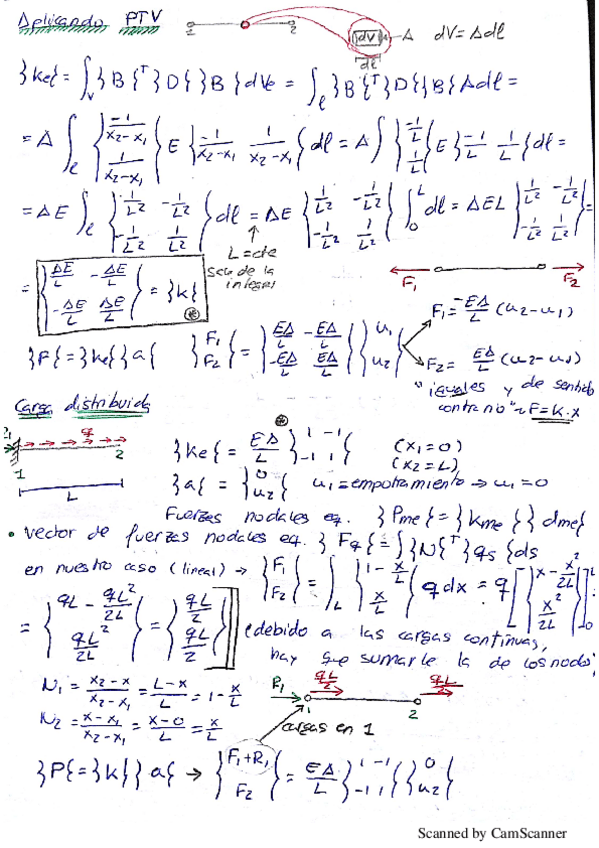 Aplicando PTV 1 2 dV A dV = A dl
dl
}Ke{ = ∫v }B{ᵀ }D{ }B{ dVe = ∫ℓ }B{ᵀ }D{ }B{ A dl =
= A ∫ℓ { -1/(x2-x1) ; 1/(x2-x1) } E { -1/(x2-x1) 1/(x2-x1) } dl = A ∫ { -1/L ; 1/L } E { -1/L 1/L } dl =
= AE ∫ℓ { 1/L² -1/L² ; -1/L² 1/L² } dl = AE { 1/L² -1/L² ; -1/L² 1/L² } ∫₀ᴸ dl = AEL { 1/L² -1/L² ; -1/L² 1/L² } =
L = cte
de la
integral
= { AE/L -AE/L ; -AE/L AE/L } = }K{ *
F1 F2
}F{ = }Ke{ }a{ { F1 ; F2 } = { EA/L -EA/L ; -EA/L EA/L } { u1 ; u2 }
F1 = -EA/L (u2-u1)
F2 = EA/L (u2-u1)
"iguales y de sentido
contrario" ~ F = K·x
Carga distribuida
q
1 2
L
*
}Ke{ = EA/L } 1 -1 ; -1 1 { (x1=0)
(x2=L)
}a{ = } 0 ; u2 { u1 = empotramiento → u1=0
Fuerzas nodales eq. }Pme{ = }Kme{ }dme{
• vector de fuerzas nodales eq. }Fq{ = ∫ }N{ᵀ }qs{ ds
en nuestro caso (lineal) → { F1 ; F2 } = ∫L { 1 - x/L ; x/L } q dx = q [ x - x²/2L ; x²/2L ]
= { qL - qL²/2L ; qL²/2L } = { qL/2 ; qL/2 } (debido a las cargas continuas,
hay que sumarle la de los nodos)
N1 = (x2-x)/(x2-x1) = (L-x)/L = 1 - x/L
R1 qL/2 qL/2
1 2
N2 = (x-x1)/(x2-x1) = (x-0)/L = x/L
cargas en 1
}P{ = }K{ }a{ → { F1+R1 ; F2 } = EA/L } 1 -1 ; -1 1 { } 0 ; u2 {
Scanned by CamScanner